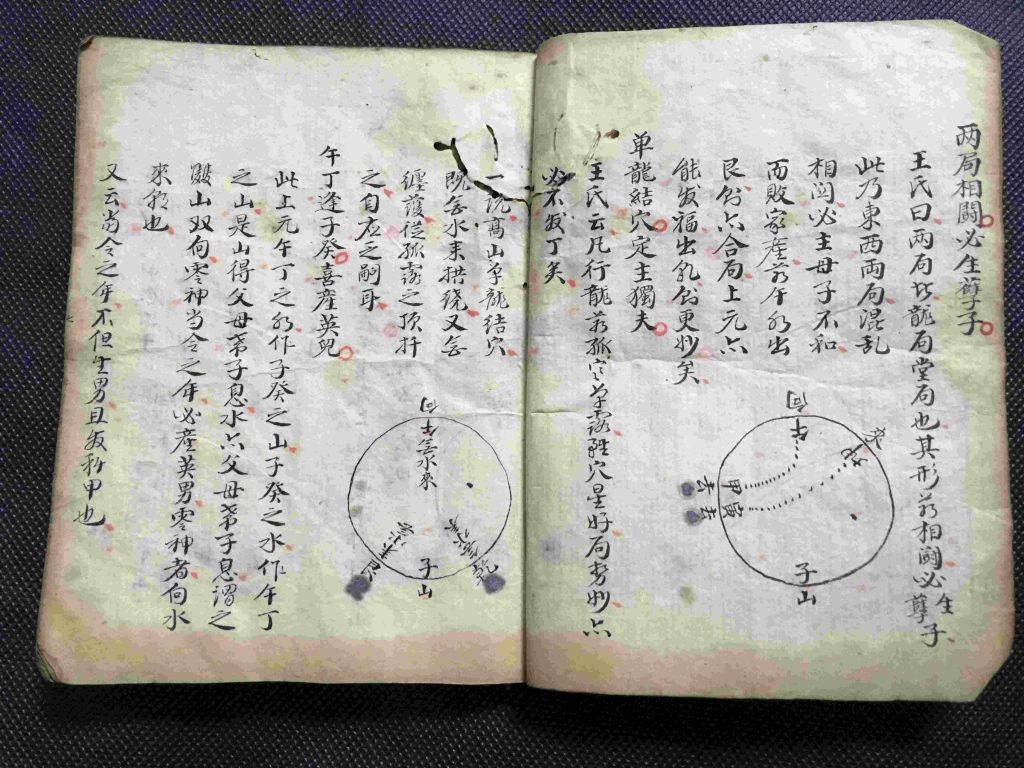 两局相鬪必生孽子
王氏曰两局皆龍局堂局也其形若相鬪必生孽子
此乃東西两局混乱
相鬪必主母子不和
而敗家產若午水出
艮亦六合局上元亦
能发福出乳更妙矣
单龍結穴定主獨夫
王氏云凡行龍若孤穴单露雖穴星好局势妙亦
必不发丁矣
一说高山单龍結穴
既無水来拱绕又無
纏護從孤露之顶扦
之自应乏嗣耳
午丁逢子癸喜產英兒
此上元午丁之水作子癸之山子癸之水作午丁
之山是山得父母苐子息水亦父母苐子息謂之
山双向零神当令之年必產英男零神者向水
來水也
又云当令之年不但生男且发科甲也
向
午
甲
寅
去
去
子
山
向
午無水來
子
山
艮
乾